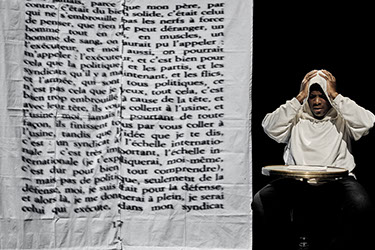 contraire, parce que mon père, par
contre, c'était du bien solide, c'était celui
qui ne s'embrouille pas les nerfs à force
rien ne peut déranger, un
tout en muscles, un
homme de sang, on aurait pu l'appeler :
l'exécuteur, et moi aussi, on pourrait
l'appeler : l'exécuteur, et c'est bien pour
cela que la politique, et les partis, et les
syndicats qu'il y a maintenant, et les flics,
et l'armée, qui sont tous politiques, c'est
pas cela que je veux, tout cela, c'est
bien trop embrouillé à cause de la tête, et
avec leur tête, ils te collent à l'usine, et
l'usine, moi, jamais ! pourtant de toute
façon, ils finissent par vous coller à
l'usine, tandis que l'idée que je te dis,
c'est pas un syndicat à l'échelle internatio-
nale ; c'est très important, l'échelle in-
ternationale (je t'expliquerai, moi-même,
c'est dur pour bien tout comprendre),
mais pas de politique, seulement de la
défense, moi, je suis fait pour la défense,
et alors là, je me donnerai à plein, je serai
celui qui exécute, dans mon syndicat
12